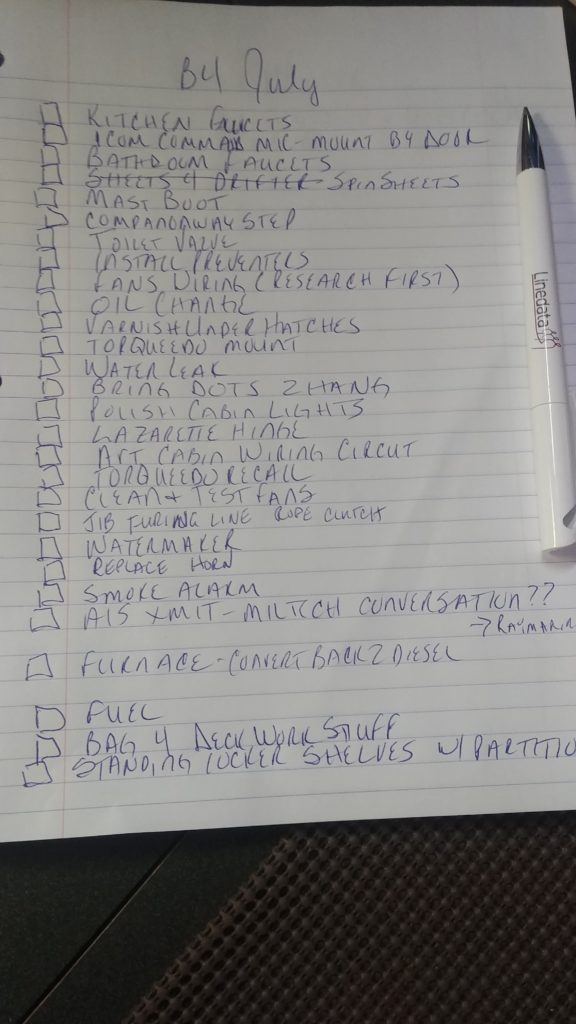 B4 July
KITCHEN FAUCETS
ICOM COMMAND MIC - MOUNT BY DOOR
BATHDOOM FAUCETS
SHEETS 4 DRIFTER SPINSHEETS
MAST BOOT
COMPANOAWAY STEP
TOILET VALVE
INSTALL PREVENTERS
FANS WIRING (RESEARCH FIRST)
OIL CHANGE
VARNISH UNDER HATCHES
TORQUEEDO MOUNT
WATER LEAK
BRING DOTS 2 HANG
POLISH CABIN LIGHTS
LAZARETTE HINGE
AFT CABIN WIRING CIRCUT
TORQUEEDO RECALL
CLEAN + TEST FANS
JIB FURING LINE ROPE CLUTCH
WATERMAKER
REPLACE HORN
SMOKE ALARM
AIS XMIT - MILTECH CONVERSATION??
→ RAYMARIN
FURNACE - CONVERT BACK 2 DIESEL
FUEL
BAG 4 DECK WORK STUFF
STANDING LOCKER SHELVES W/ PARTITIO
Linedata